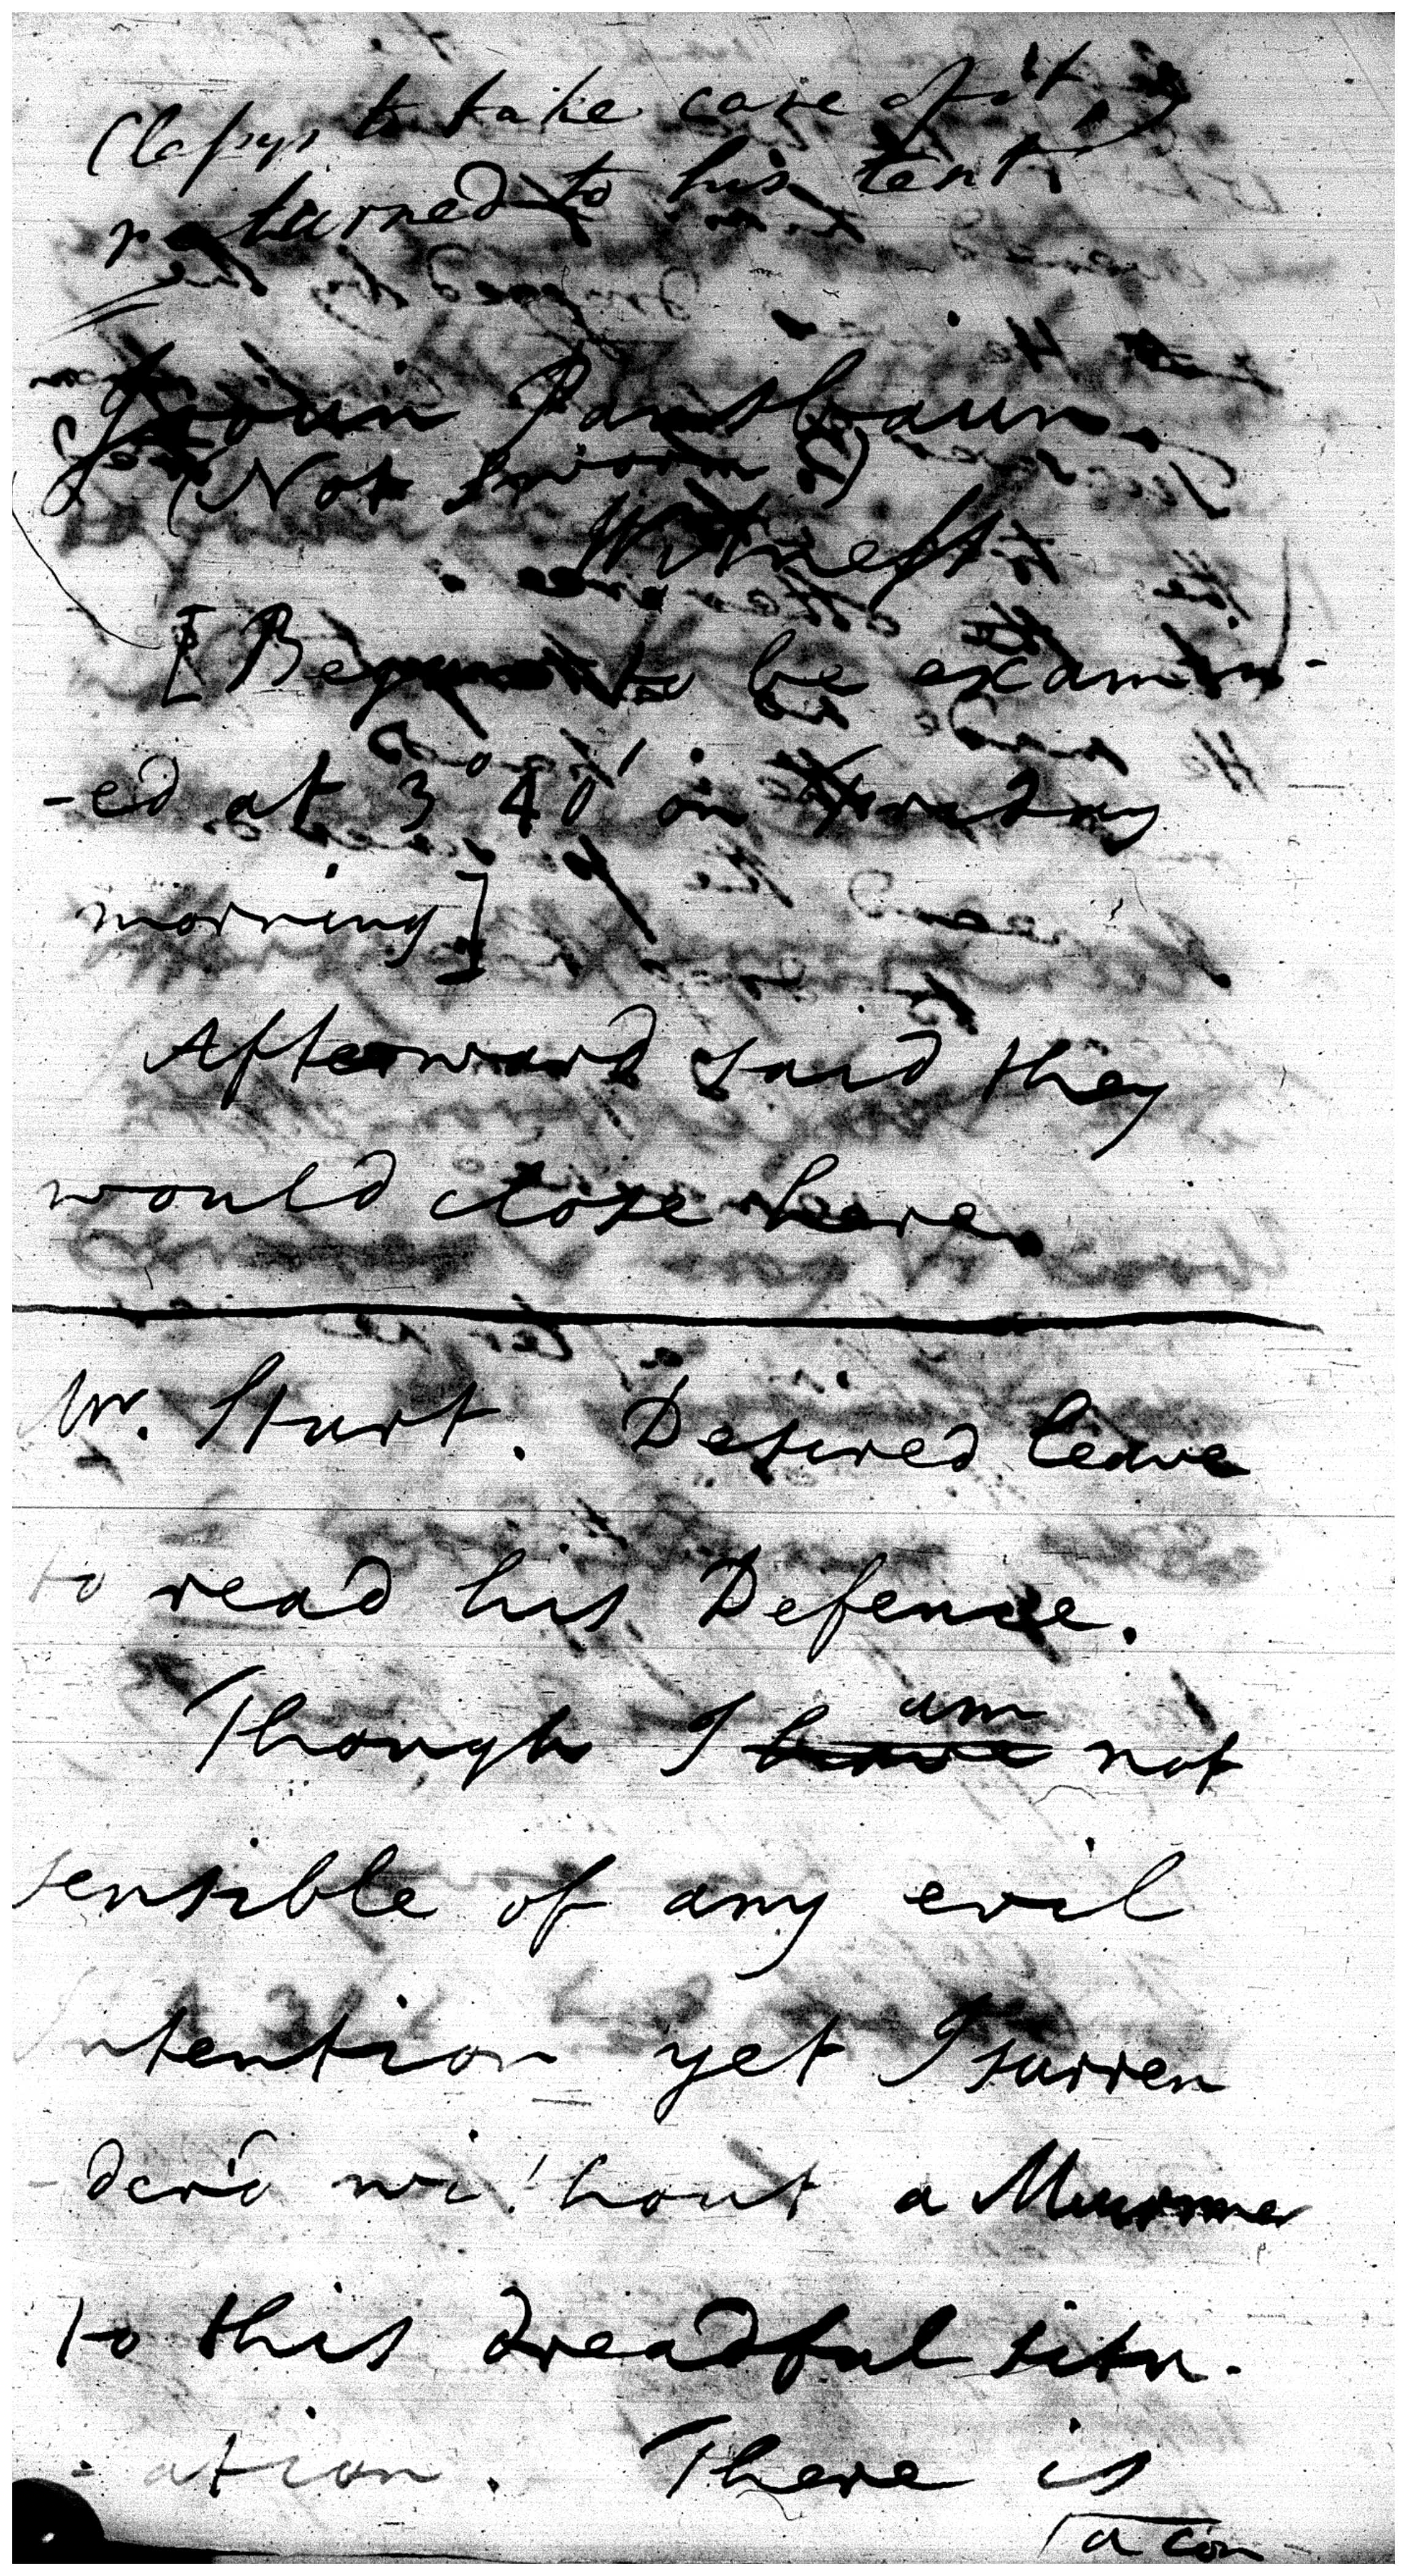 to take care of it,
returned to his tent
(Not Sworn)
Witness
[Began to be examin-
-ed at 3° 40' in
morning]
Afterward said they
would close here.
Mr. Sturt. Desired leave
to read his Defence.
Though I have am not
sensible of any evil
Intention yet I surren
-der'd without a Murmer
to this dreadful situ-
-ation. There is
a con